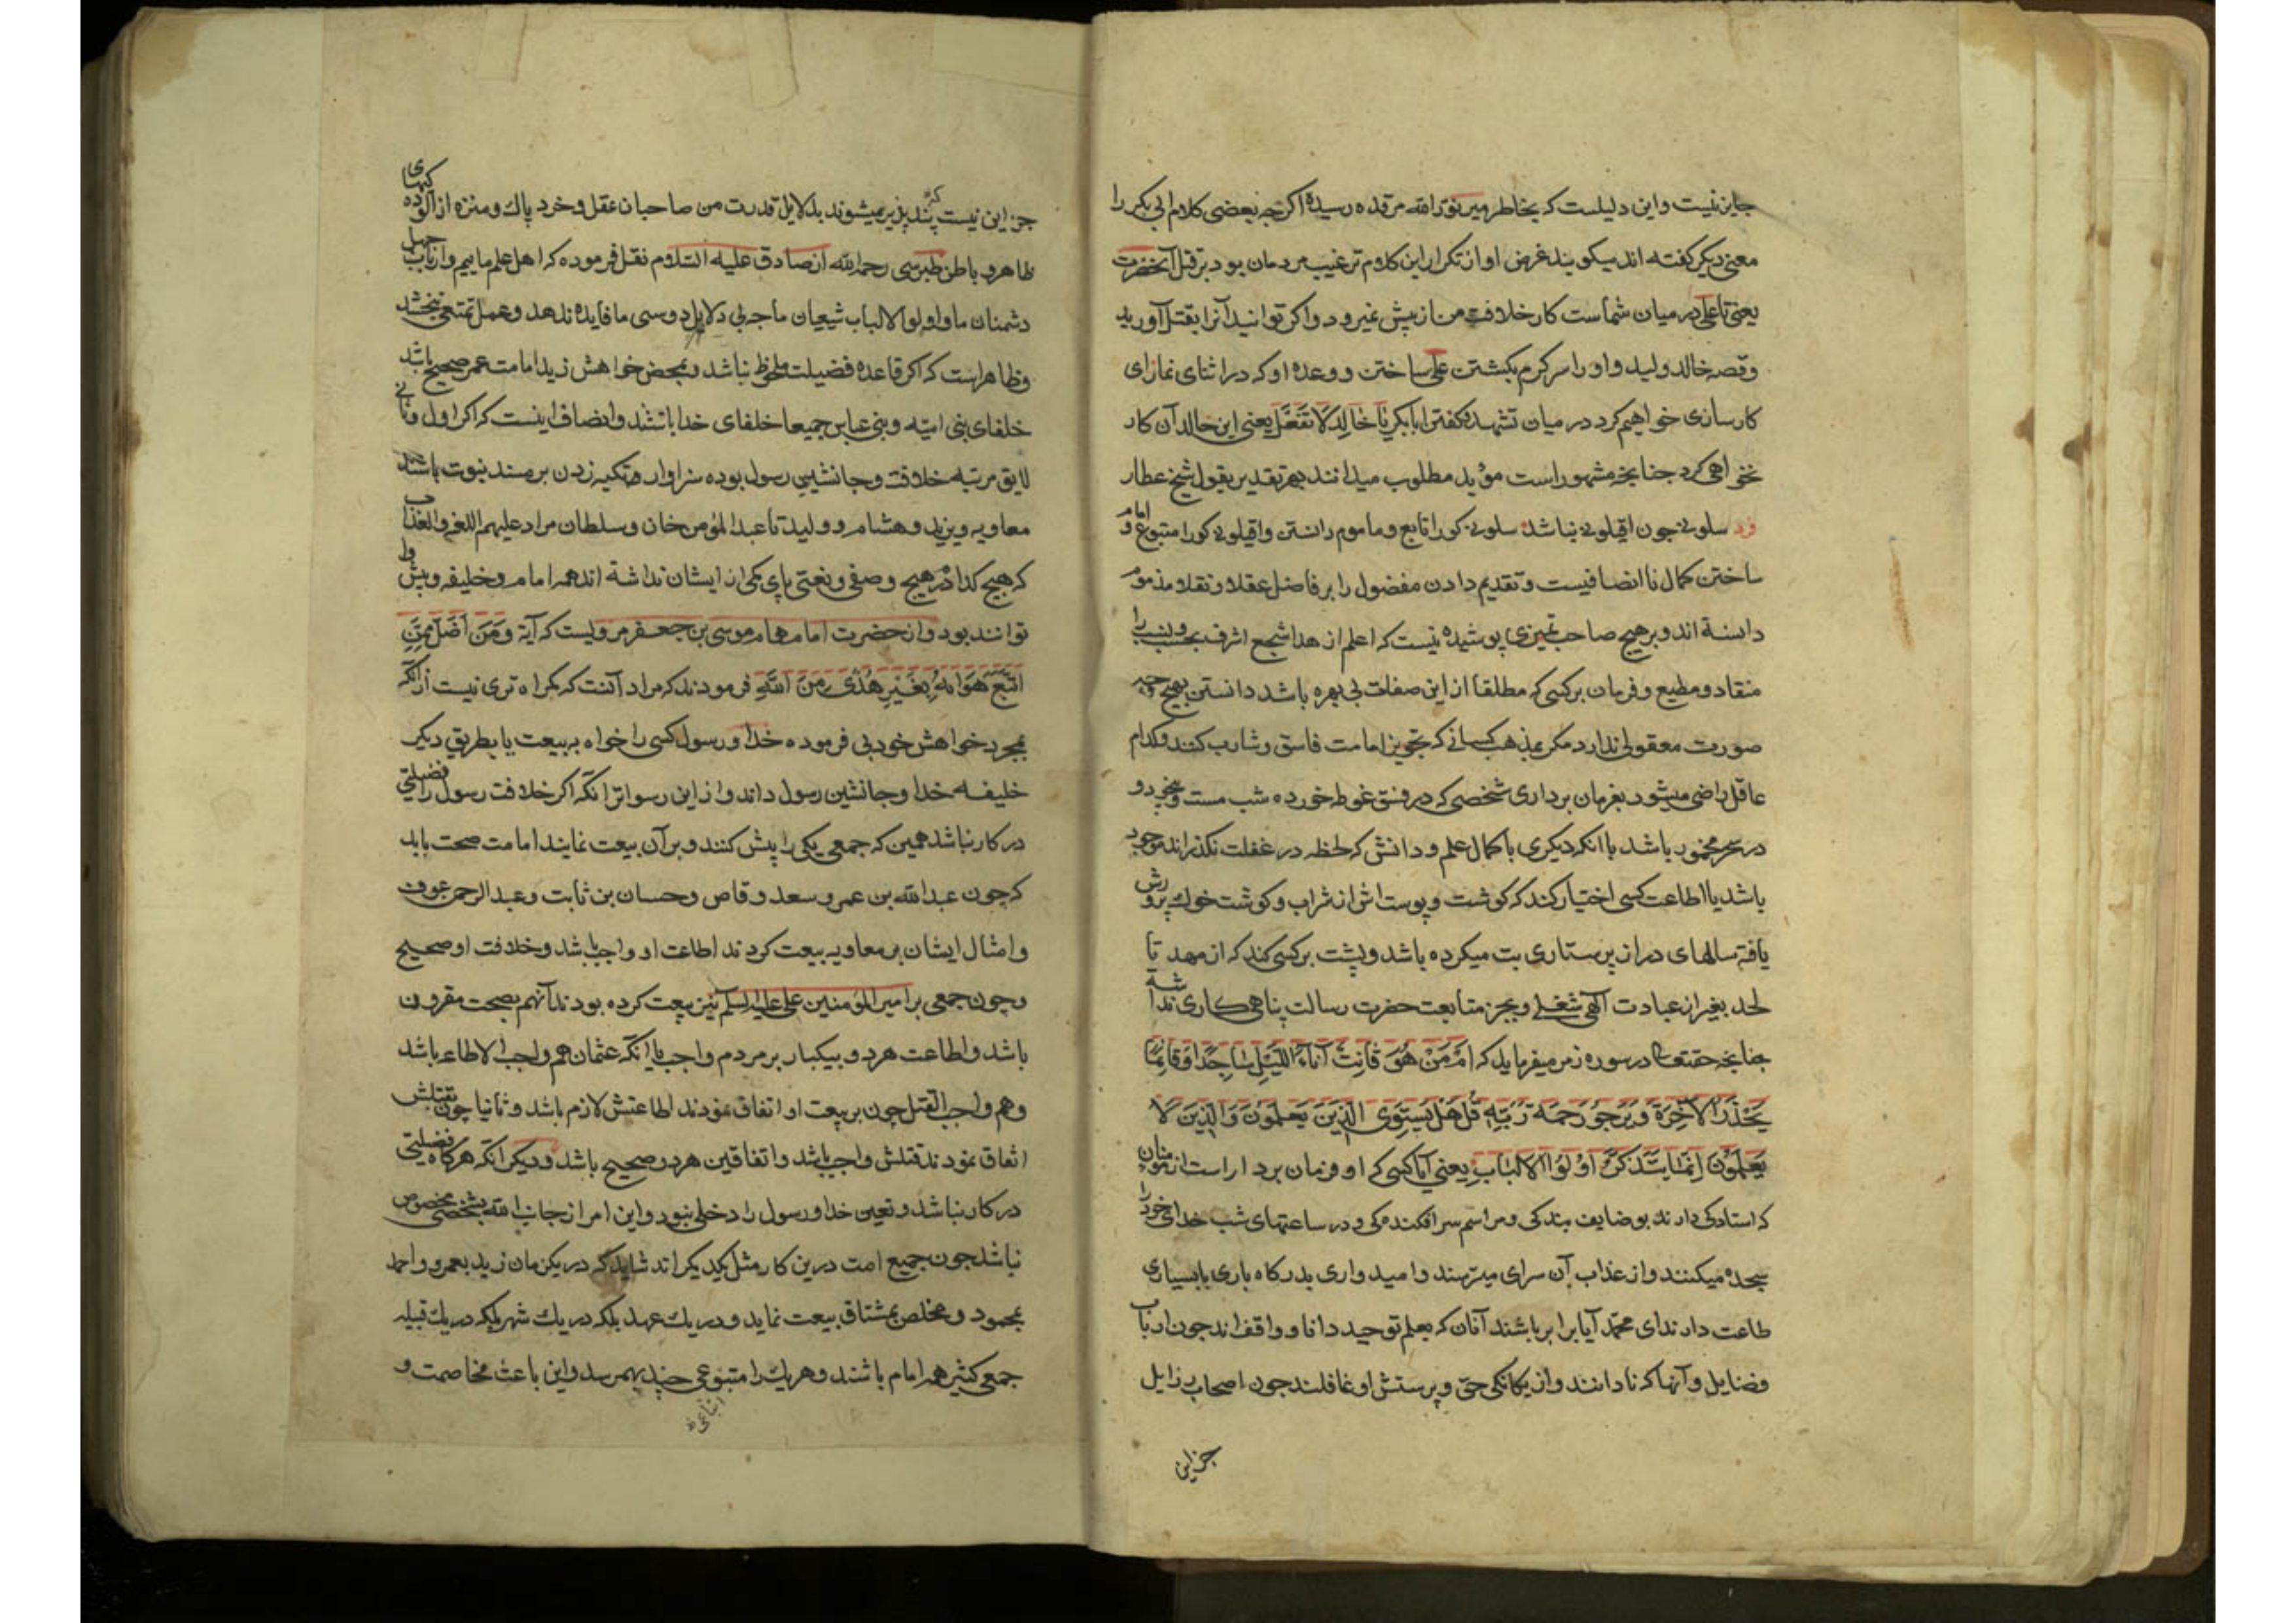 جایز نیست و این دلیلست که بخاطر میر نورالله مرقده رسیده اکرچه بعضی کلام ابی بکر را
معنی دیکر کفته اند میکویند غرض او از تکرار این کلام ترغیب مردمان بود بر قتل آنحضرت
یعنی تا علی در میان شماست کار خلافت من از پیش نمیرود و اکر توانید آنرا بقتل آورید
و قصه خالد ولید و او را سرکرم بکشتن علی ساختن و وعده او که در اثنای نماز ای
کارسازی خواهیم کرد در میان تشهد و کفتن ابابکر یا خٰالِد لَا تَفْعَل یعنی این خالد آن کار
نخواهی کرد جنانچه مشهور است مؤید مطلوب میدانند بهر تقدیر بقول شیخ عطار
فرد سلونی جون اقیلونی نباشد سلونی کو را تابع و ماموم دانستن و اقیلونی کو را متبوع و امام
ساختن کمال ناانصافیست و تقدیم دادن مفضول را بر فاضل عقلا و نقلا مذموم
دانسته اند و بر هیچ صاحب تمیزی پوشیده نیست که اعلم ازهد اشجع اشرف بحسب و نسب را
منقاد و مطیع و فرمان بر کسی که مطلقا از این صفات بی بهره باشد دانستن بهیچ وجه
صورت معقولی ندارد مکر بمذهب کسانی که تجویز امامت فاسق و شارب کنند و کدام
عاقل راضی میشود بفرمان برداری شخصی که در فسق غوطه خورده شب مست و بیخود و
در سحر مخمور باشد با انکه دیکری با کمال علم و دانش که لحظه در غفلت نکذراند موجود
باشد یا اطاعت کسی اختیار کند که کوشت و پوست اش از شراب و کوشت خوک پرورش
یافته سالهای دراز پرستاری بت میکرده باشد و پشت بر کسی کند که از مهد تا
لحد بغیر از عبادت آلهی شغلی و بجز متابعت حضرت رسالت پناهی کاری نداشته
جنانچه حقتعالی در سوره زمر میفرماید که امَّنْ هُوَ قٰانِتٌ آنٰاءَ اللَّیْلِ سٰاجِدًا وَقٰائِمًا
یَحْذَرُ الْآخِرَةَ وَیَرْجُو رَحْمَةَ رَبِّهِ قُلْ هَلْ یَسْتَوِی الَّذِینَ یَعْلَمُونَ وَالَّذِینَ لَا
یَعْلَمُونَ اِنَّمٰا یَتَذَکَّرُ اُولُوا الْاَلْبٰابِ یعنی آیا کسی که او فرمان بردار است از مومنان
که استادکی دارند بوضایف بندکی و مراسم سرافکندکی و در ساعتهای شب خدای خود را
سجده میکنند و از عذاب آن سرای میترسند و امیدواری بدرکاه باری با بسیاری
طاعت دارند ای محمّد آیا برابر باشند آنان که بعلم توحید دانا و واقف اند جون ارباب
فضایل و آنها که نادانند و از یکانکی حق و پرستش او غافلند جون اصحاب رذایل
جز این
جز این نیست که پند پذیر میشوند بدلایل قدرت من صاحبان عقل و خرد پاک و منزه از الودکیهای
ظاهر و باطن طبرسی رحمه الله از صادق علیه السّلام نقل فرموده که اهل علم ماییم و ارباب جهل
دشمنان ما و اولوالالباب شیعیان ما جه بی دلایل دوستی ما فایده ندهد و عمل تمتعی نبخشد
و ظاهر است که اکر قاعده فضیلت ملحوظ نباشد و بمحض خواهش زید امامت عمر صحیح باشد
خلفای بنی امیّه و بنی عباس جمیعا خلفای خدا باشند و انصاف اینست که اکر اول و ثانی
لایق مرتبه خلافت و جانشینی رسول بوده سزاوار تکیه زدن بر مسند نبوت باشند
معاویه و یزید و هشام و ولید تا عبد المؤمن خان و سلطان مراد علیهم اللعن والعذاب
که هیچ کدام در هیچ وصفی و نعتی پای کمی از ایشان نداشته اند همه امام و خلیفه و پیشوا
توانند بود و از حضرت امام همام موسی بن جعفر مرویست که آیة وَمَنْ اَضَلُّ مِمَّنِ
اتَّبَعَ هَوٰایهُ بِغَیْرِ هُدًی مِنَ اللهِ فرمودند که مراد آنست که کمراه تری نیست از آنکه
بمجرد خواهش خود بی فرموده خدا و رسول کسی را خواه به بیعت یا بطریق دیکر
خلیفه خدا و جانشین رسول داند و از این رسواتر انکه اکر خلافت رسول را فضیلتی
در کار نباشد همین که جمعی یکی را پیش کنند و بر آن بیعت نمایند امامت صحت یابد
که چون عبدالله بن عمر و سعد وقاص و حسان بن ثابت و عبدالرحمن عوف
و امثال ایشان بر معاویه بیعت کردند اطاعت او واجب باشد و خلافت او صحیح
و چون جمعی بر امیر المؤمنین علی علیه السلم نیز بیعت کرده بودند آنهم بصحت مقرون
باشد و اطاعت هر دو بیکبار بر مردم واجب با انکه عثمان هم واجب الاطاعه باشد
و هم واجب القتل چون بر بیعت او اتفاق نمودند اطاعتش لازم باشد و ثانیا چون بقتلش
اتفاق نمودند قتلش واجب باشد و اتفاقین هر دو صحیح باشد و دیکر آنکه هرکاه فضیلتی
در کار نباشد و تعین خدا و رسول را دخلی نبود و این امر از جانب الله بشخصی مخصوص
نباشد جون جمیع امت درین کار مثل یکدیکراند شاید که در یکزمان زید بعمرو و احمد
بمحمود و مخلص بمشتاق بیعت نماید و در یک عهد بلکه در یک شهر بلکه در یک قبیله
جمعی کثیر همه امام باشند و هریک را متبوعی چند بهمرسد و این باعث مخاصمت و
اتباعی